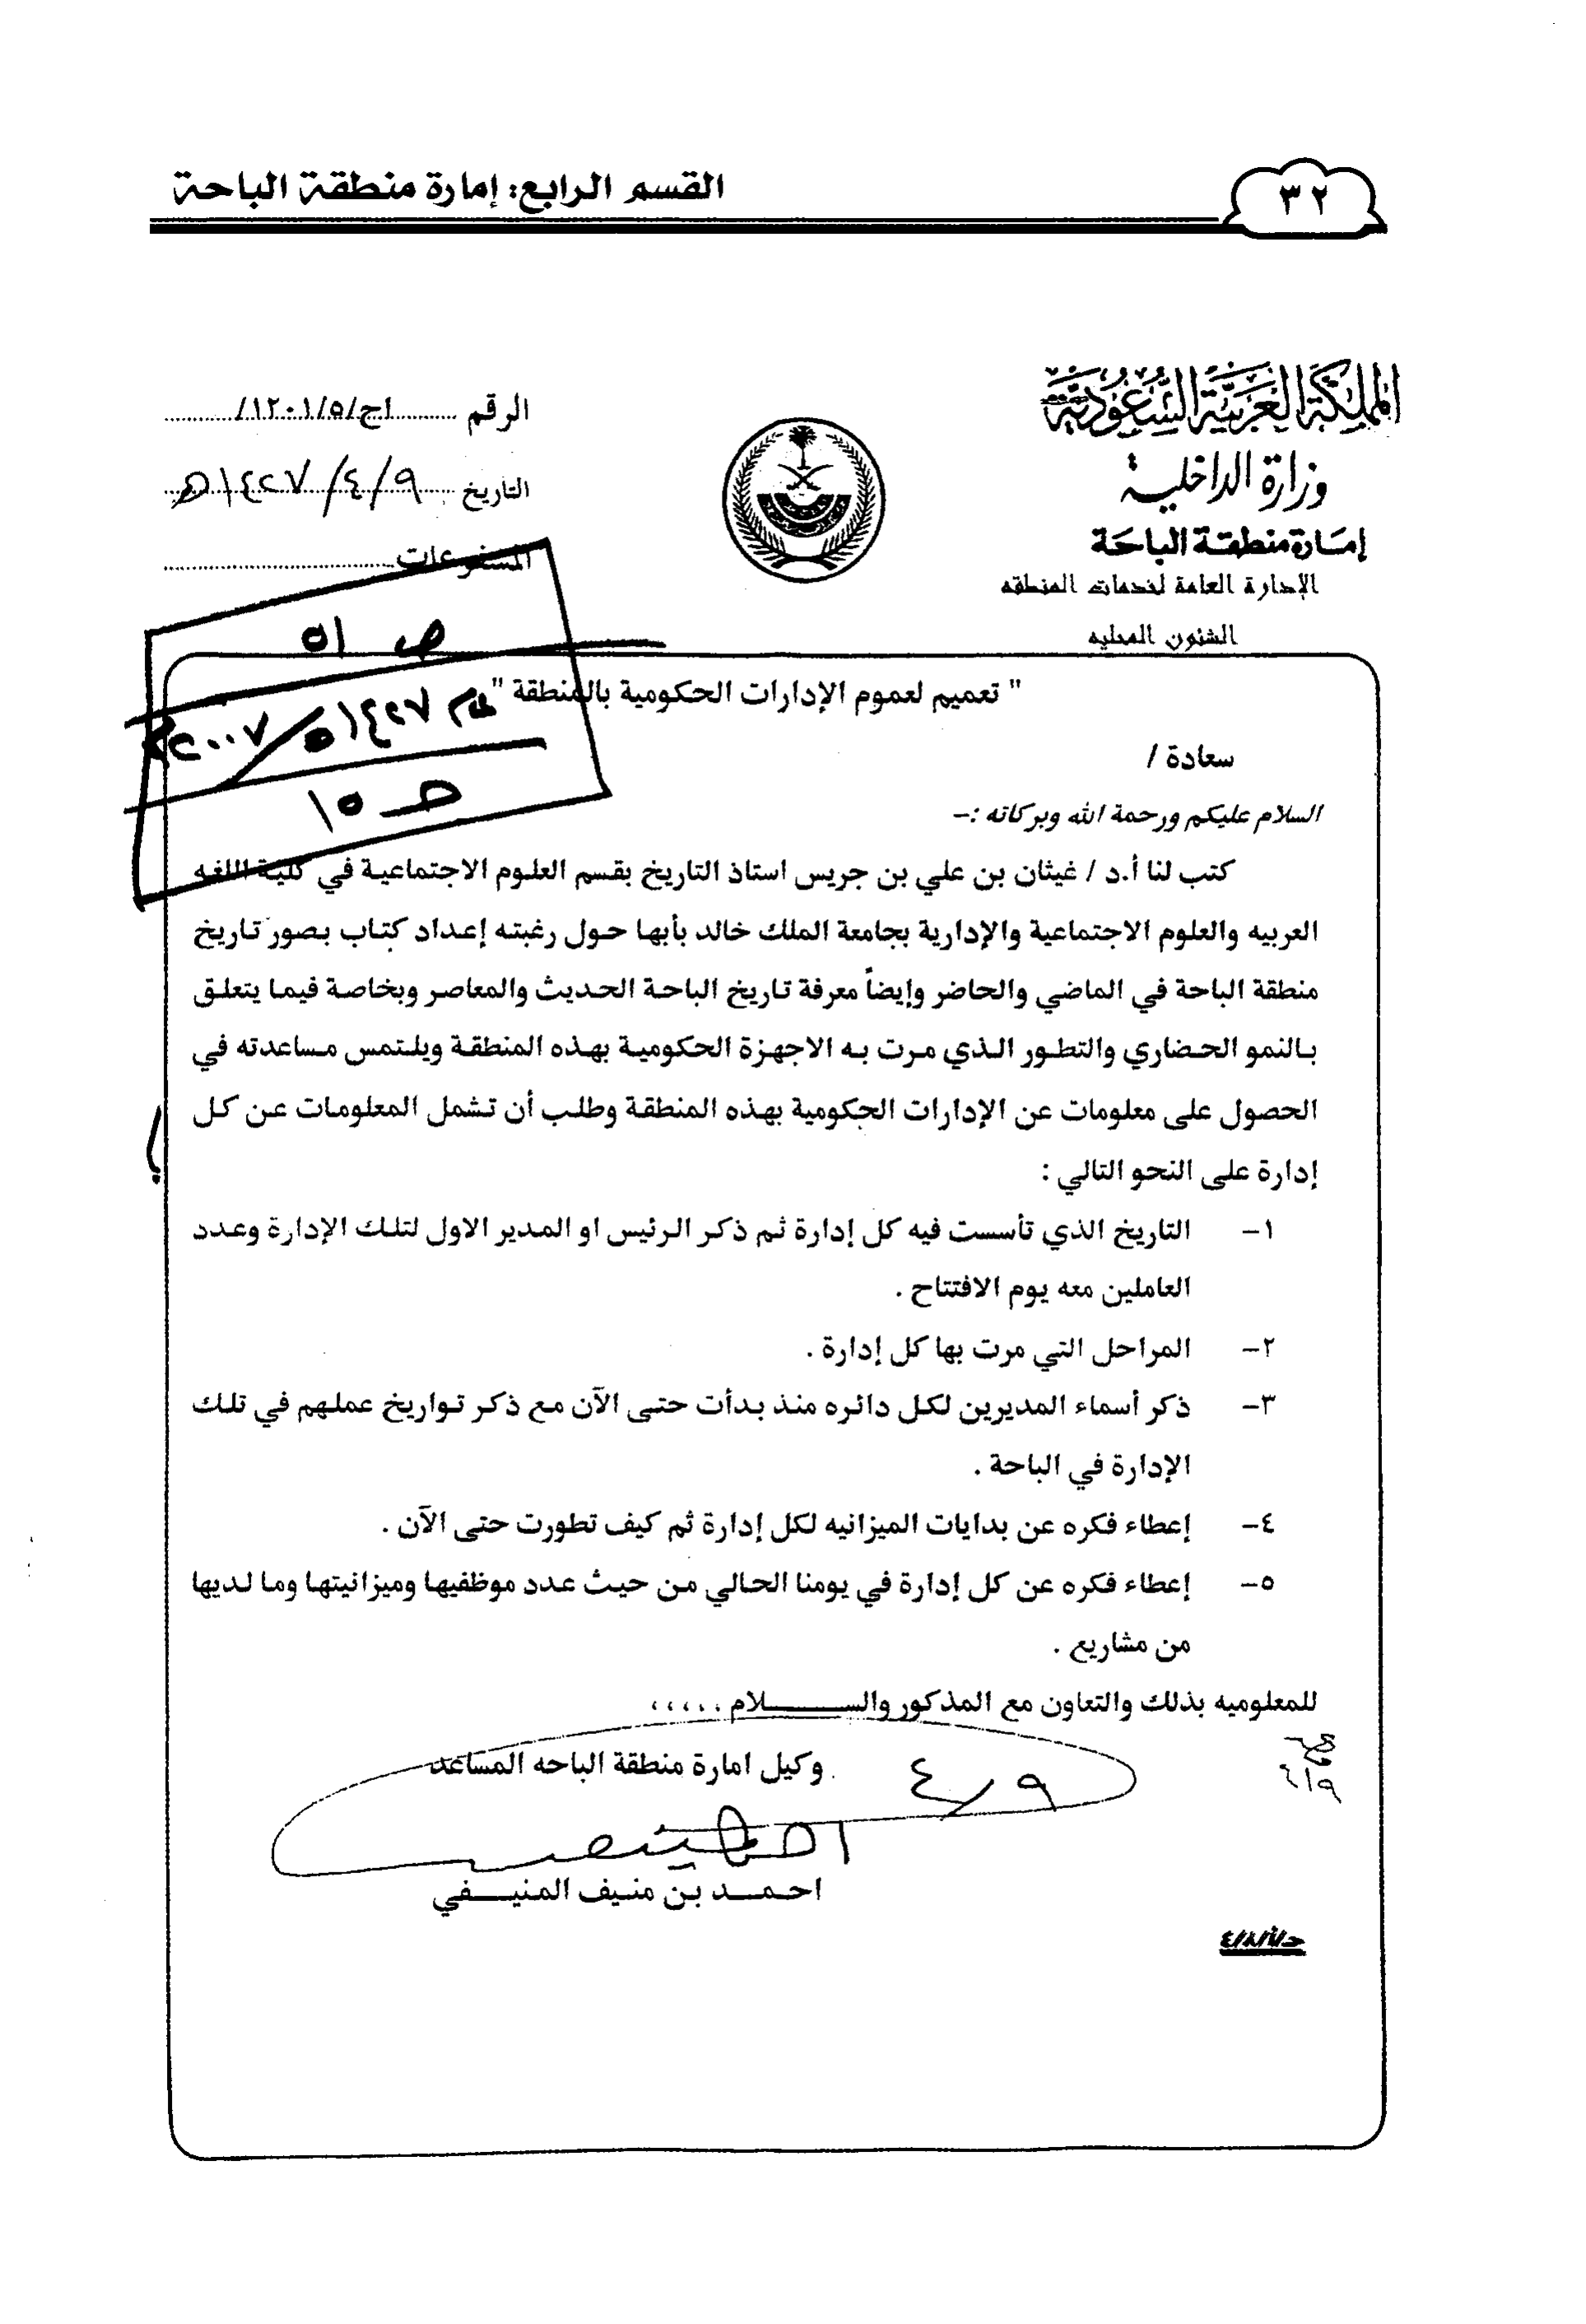 القسم الرابع: إمارة منطقة الباحة
٣٢
المملكة العربية السعودية
وزارة الداخلية
إمارة منطقة الباحة
الإدارة العامة لخدمات المنطقه
الشئون المحليه
الرقم اج/١٢٠١/٥/
التاريخ ١٤٢٧/٤/٩هـ
المشفوعات
ص ٥١
٥١٤٢٧ / ٢٠٠٧م
ص ١٥
" تعميم لعموم الإدارات الحكومية بالمنطقة "
سعادة /
السلام عليكم ورحمة الله وبركاته :-
كتب لنا أ.د / غيثان بن علي بن جريس استاذ التاريخ بقسم العلوم الاجتماعية في كلية اللغه
العربيه والعلوم الاجتماعية والإدارية بجامعة الملك خالد بأبها حول رغبته إعداد كتاب بصور تاريخ
منطقة الباحة في الماضي والحاضر وإيضاً معرفة تاريخ الباحة الحديث والمعاصر وبخاصة فيما يتعلق
بالنمو الحضاري والتطور الذي مرت به الاجهزة الحكومية بهذه المنطقة ويلتمس مساعدته في
الحصول على معلومات عن الإدارات الحكومية بهذه المنطقة وطلب أن تشمل المعلومات عن كل
إدارة على النحو التالي :
١- التاريخ الذي تأسست فيه كل إدارة ثم ذكر الرئيس او المدير الاول لتلك الإدارة وعدد
العاملين معه يوم الافتتاح .
٢- المراحل التي مرت بها كل إدارة .
٣- ذكر أسماء المديرين لكل دائره منذ بدأت حتى الآن مع ذكر تواريخ عملهم في تلك
الإدارة في الباحة .
٤- إعطاء فكره عن بدايات الميزانيه لكل إدارة ثم كيف تطورت حتى الآن .
٥- إعطاء فكره عن كل إدارة في يومنا الحالي من حيث عدد موظفيها وميزانيتها وما لديها
من مشاريع .
للمعلوميه بذلك والتعاون مع المذكور والســــــلام ،،،،،
وكيل امارة منطقة الباحه المساعد
٤/٩
٤/٩
احمـــد بن منيف المنيـــفي